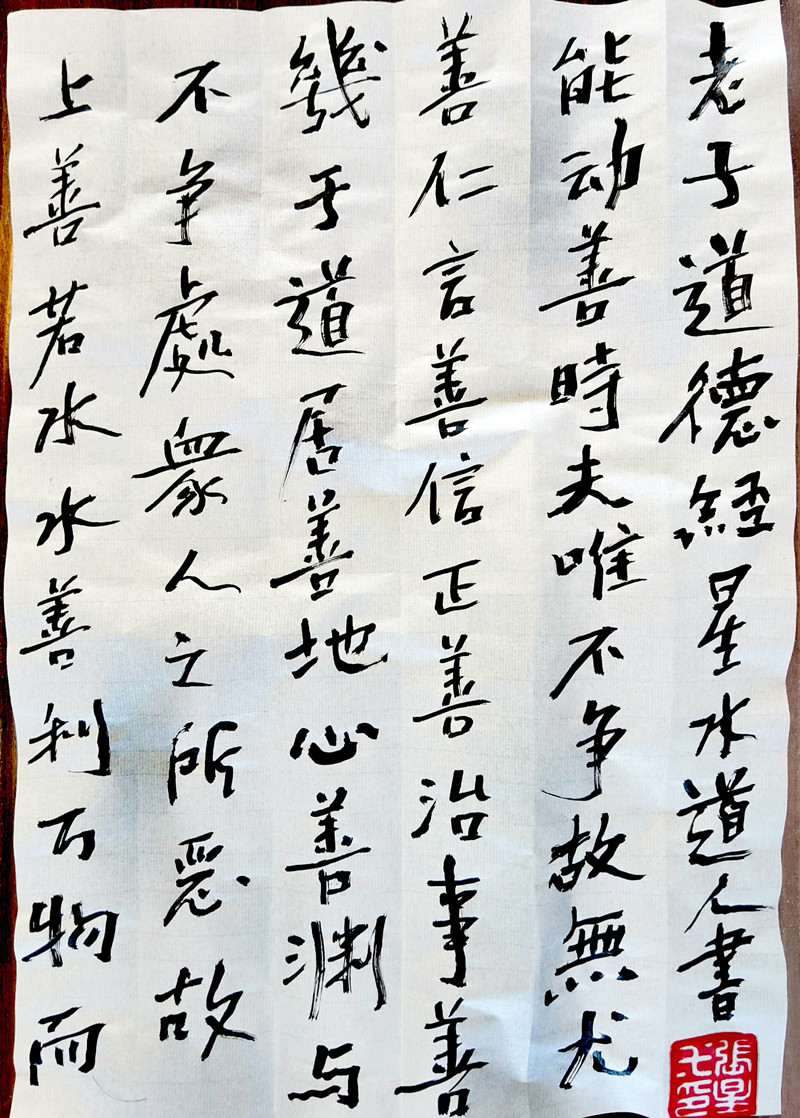 上善若水水善利万物而
不争處衆人之所惡故
幾于道居善地心善渊与
善仁言善信正善治事善
能动善時夫唯不争故無尤
老子道德經星水道人書